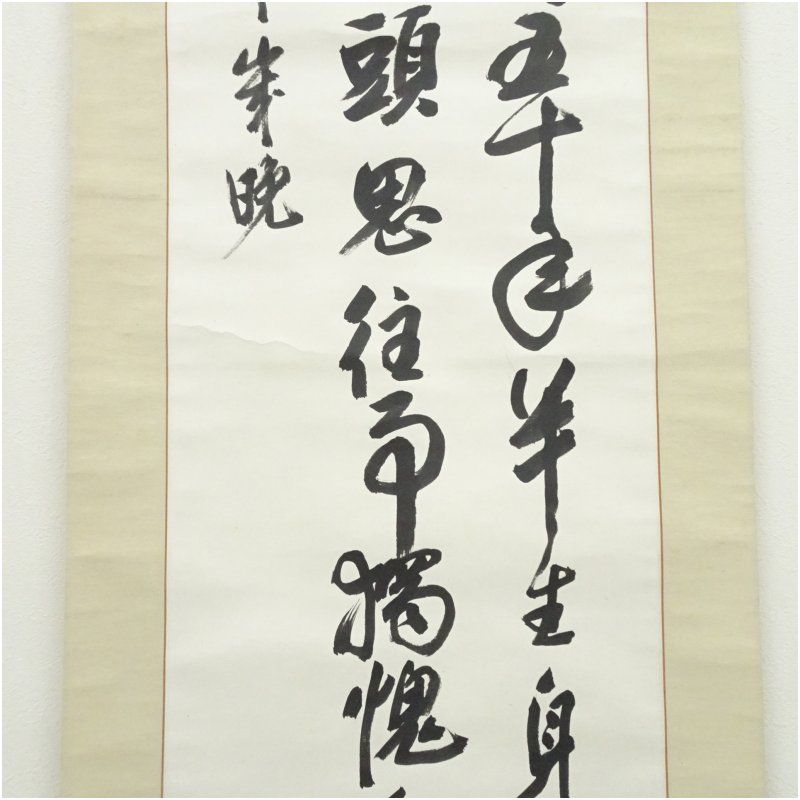 五十年半生身
頭思往事獨愧
歲晚